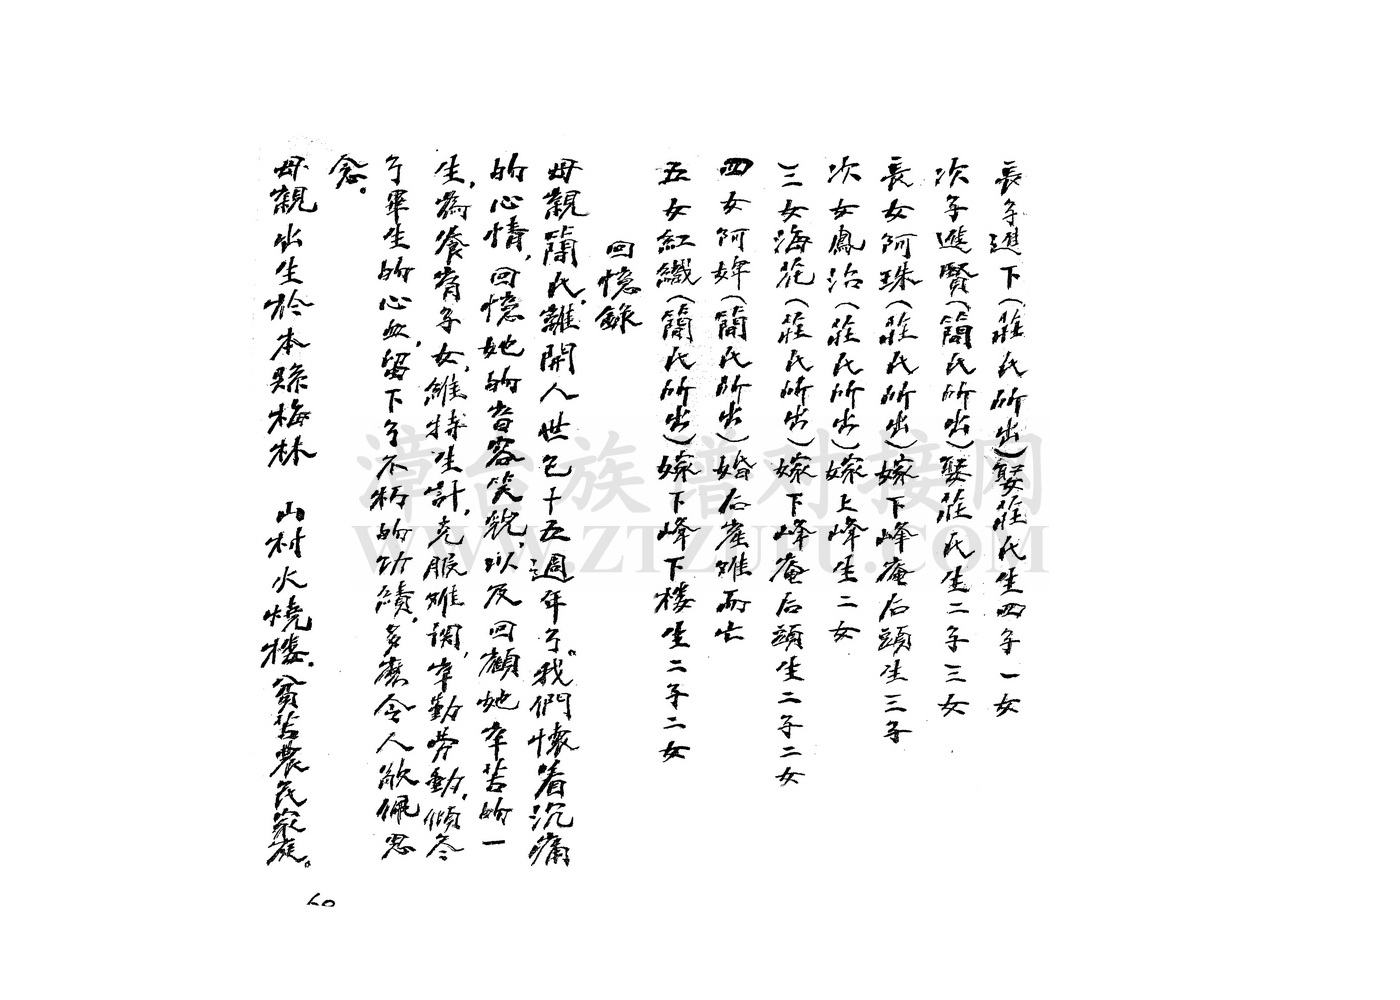 長子進下(莊氏所出)娶莊氏生四子一女
次子進賢(簡氏所出)娶莊氏生二子三女
長女阿珠(莊氏所出)嫁下峰庵后頭生三子
次女鳳治(莊氏所出)嫁上峰生二女
三女海花(莊氏所出)嫁下峰庵后頭生二子二女
四女阿婢(簡氏所出)婚后產难而亡
五女紅織(簡氏所出)嫁下峰下楼生二子二女
回憶錄
母親簡氏,離開人世已十五週年了。我們懷着沉痛
的心情,回憶她的音容笑貌,以及回顧她辛苦的一
生,為養育子女,維持生計,克服难関,辛勤勞動,傾尽
了畢生的心血,留下了不朽的功績,多麽令人欽佩思
念。
母親出生於本縣梅林 山村火燒楼。貧苦農民家庭。
60
漳台族谱对接网
WWW.ZTZUPU.COM